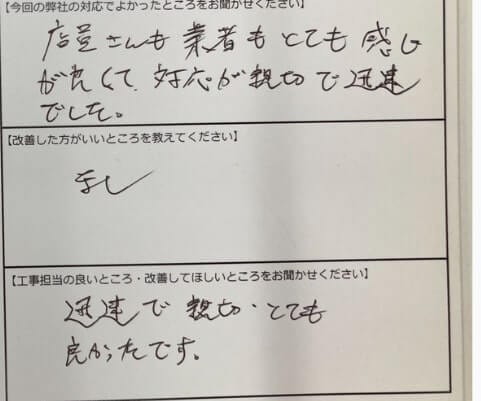 【今回の弊社の対応でよかったところをお聞かせください】
店員さんも 業者も とても 感じ
が良くて、対応が親切で迅速
でした。
【改善した方がいいところを教えてください】
なし
【工事担当の良いところ・改善してほしいところをお聞かせください】
迅速で 親切・とても
良かったです。